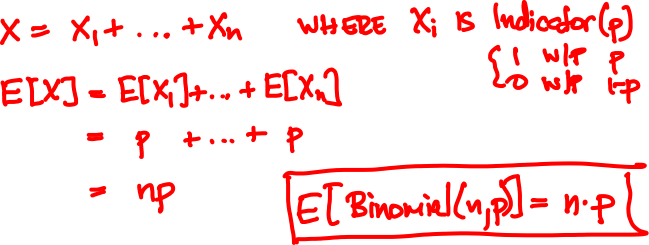 X = X₁ + ... + Xₙ WHERE Xᵢ IS Indicator(p)
{ 1 w/p p
0 w/p 1-p
E[X] = E[X₁]+...+ E[Xₙ]
= p + ... + p
= np
E[Binomial(n,p)] = n·p